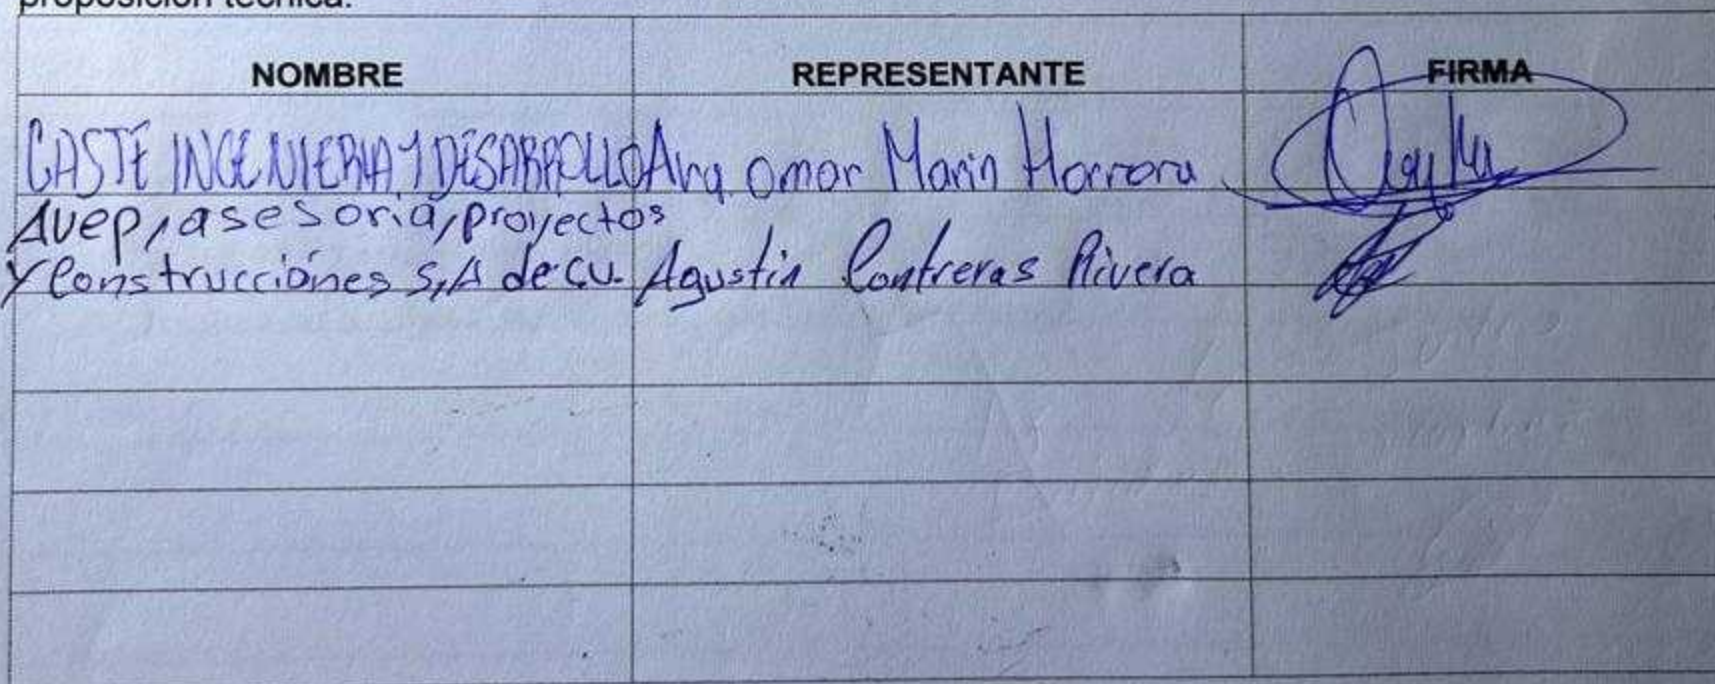 proposición técnica.
NOMBRE REPRESENTANTE FIRMA
CASTE INGENIERIA Y DESARROLLO Arq. Omar Marin Herrera
Avep, asesoria, proyectos
y Construcciónes S,A de cv. Agustin Contreras Rivera